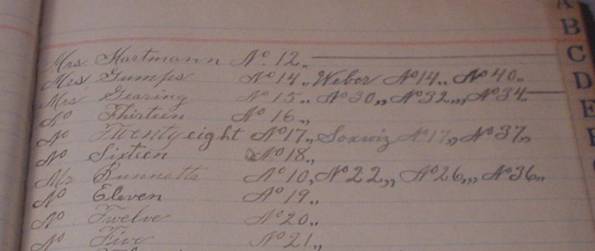 Mrs Hartmann No. 12.,
Mrs Gumps No 14., Weber No 14., No 40.,
Mrs Gearing No 15., No 30,, No 32,,, No 34
No Thirteen No 16.,
No Twentyeight No 17,, No 17,, No 37,,
No Sixteen No 18.,
Mr Bunnetts No 10, No 22,, No 26,,, No 36,,
No Eleven No 19.,
No Twelve No 20.,
No Five No 21.,
A
B
C
D
E